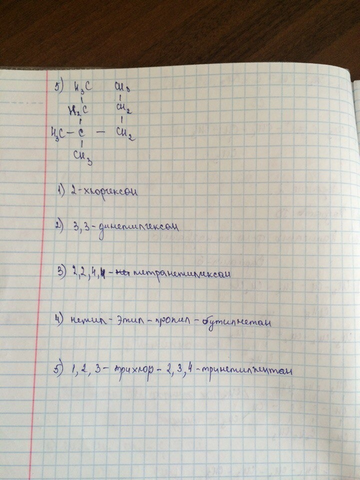 5) H₃C CH₃
H₂C CH₂
H₃C – C – CH₂
CH₃
1) 2-хлоргексан
2) 3,3-диметилгексан
3) 2,2,4,4-тетраметилгексан
4) метил-этил-пропил-бутилметан
5) 1,2,3-трихлор-2,3,4-триметилпентан